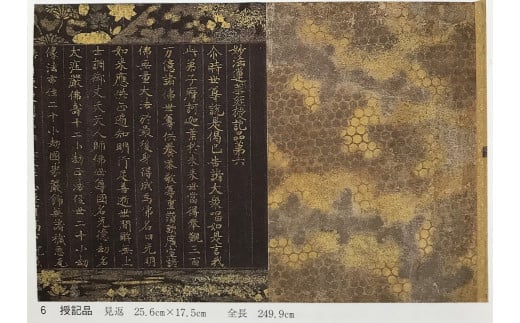 妙法蓮華經授記品第六
尒時世尊說是偈已告諸大衆唱如是言我
此弟子摩訶迦葉於未來世當得奉覲三百
万億諸佛世尊供養恭敬尊重讚歎廣宣諸
佛無量大法於最後身得成為佛名曰光明
如來應供正遍知明行足善逝世間解无上
士調御丈夫天人師佛世尊國名光德劫名
大莊嚴佛壽十二小劫正法住世二十小劫
像法亦住二十小劫國界嚴飾無諸穢惡瓦
6 授記品 見返 25.6cm×17.5cm 全長 249.9cm